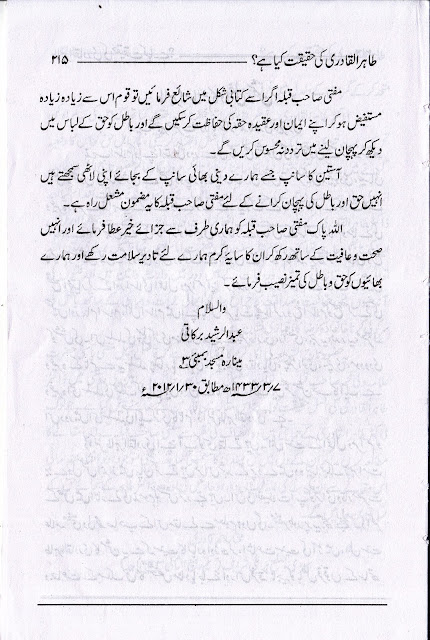 طاہر القادری کی حقیقت کیا ہے؟ ۲۱۵
مفتی صاحب قبلہ اگر اسے کتابی شکل میں شائع فرمائیں تو قوم اس سے زیادہ زیادہ
مستفیض ہو کر اپنے ایمان اور عقیدہ حقہ کی حفاظت کر سکیں گے اور باطل کو حق کے لباس میں
دیکھ کر پہچان لینے میں تردد نہ محسوس کریں گے۔
آستین کا سانپ جسے ہمارے دینی بھائی سانپ کے بجائے اپنی لاٹھی سمجھتے ہیں
انہیں حق اور باطل کی پہچان کرانے کے لئے مفتی صاحب قبلہ کا یہ مضمون مشعل راہ ہے۔
اللہ پاک مفتی صاحب قبلہ کو ہماری طرف سے جزائے خیر عطا فرمائے اور انہیں
صحت و عافیت کے ساتھ رکھ کر ان کا سایۂ کرم ہمارے لئے تا دیر سلامت رکھے اور ہمارے
بھائیوں کو حق و باطل کی تمیز نصیب فرمائے۔
والسلام
عبدالرشید برکاتی
مینارہ مسجد بمبئی ۳
۷/۳/۱۴۳۳ھ مطابق ۳۰/۱/۲۰۱۲ء